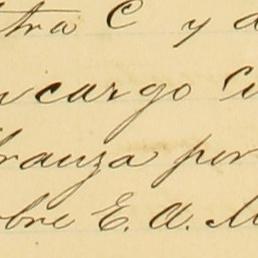 tra C y
cargo
branza por
obre E. A. M